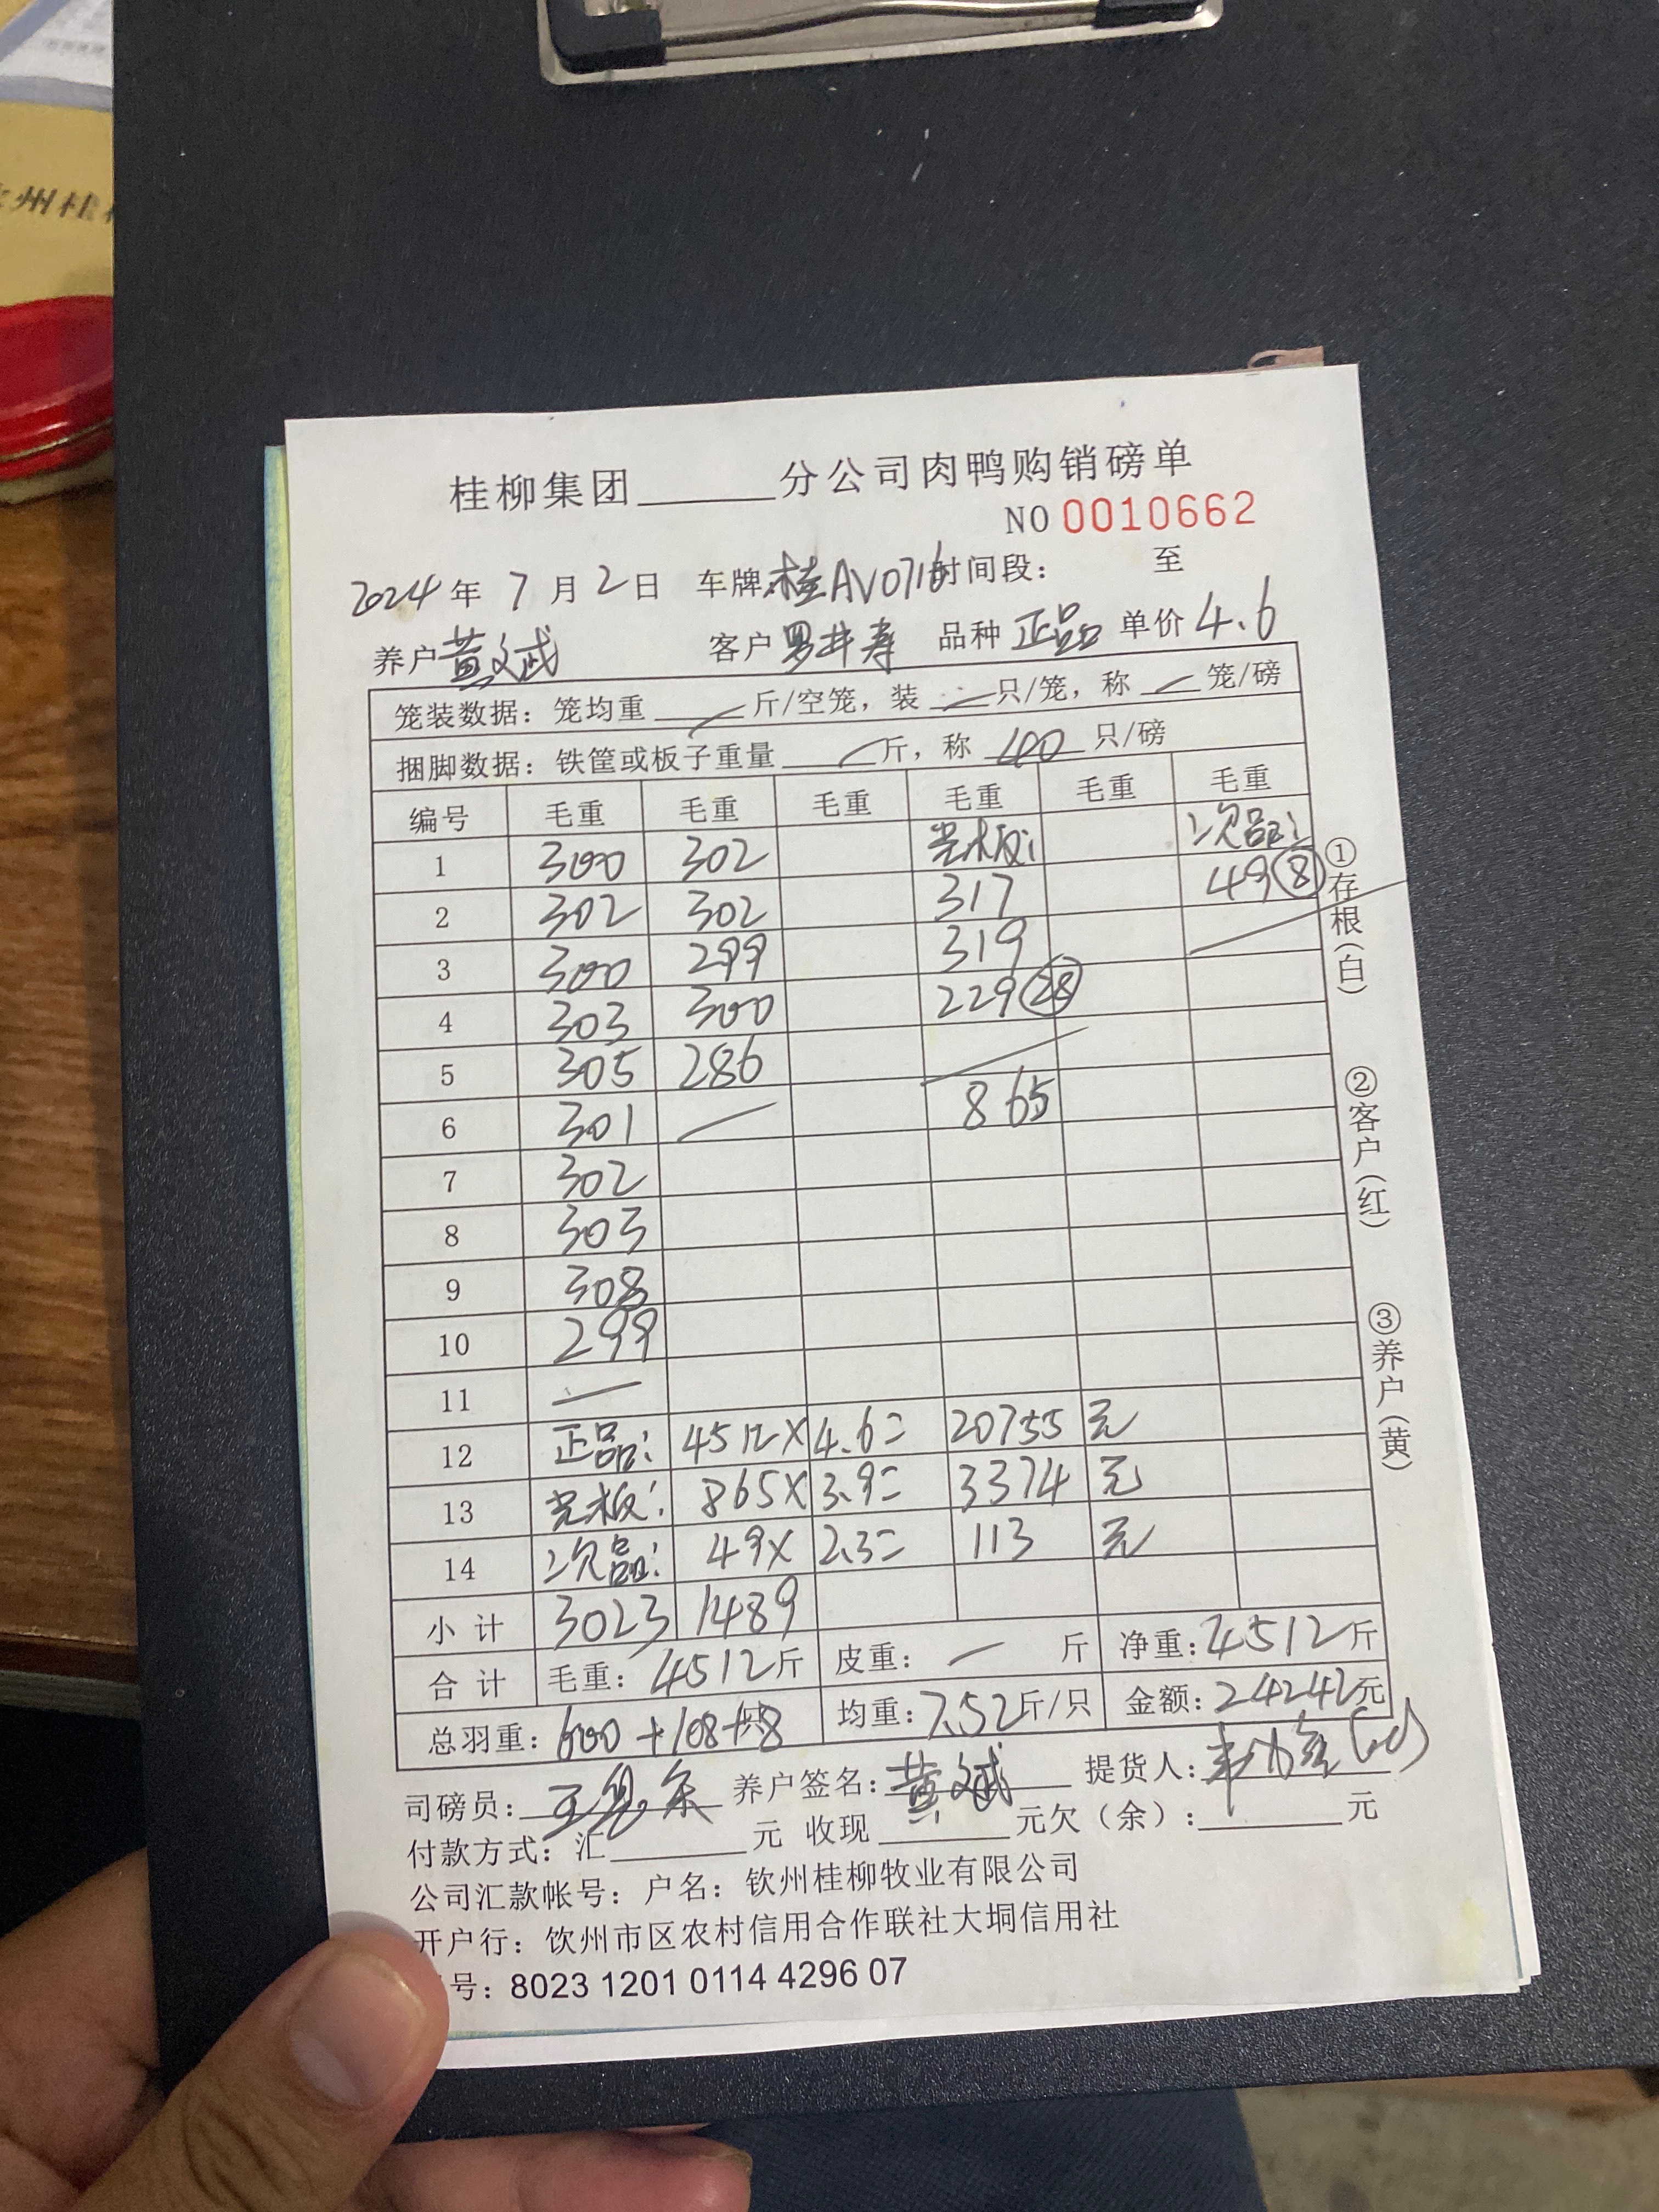 州桂
桂柳集团______分公司肉鸭购销磅单
NO 0010662
2024年 7月 2日 车牌:桂AV0716 时间段: 至
养户 黄文斌 客户 品种 正品 单价 4.6
笼装数据: 笼均重 — 斤/空笼, 装 — 只/笼, 称 — 笼/磅
捆脚数据: 铁筐或板子重量 — 斤, 称 40 只/磅
编号 毛重 毛重 毛重 毛重 毛重 毛重
1 300 302 光板: 次品:
2 302 302 317 49⑧
3 300 299 319
4 303 300 229㉘
5 305 286
6 301 — 865
7 302
8 303
9 308
10 299
11 —
12 正品: 4512× 4.6= 20755 元
13 光板: 865× 3.9= 3374 元
14 次品: 49× 2.3= 113 元
小计 3023 1489
合计 毛重: 4512斤 皮重: — 斤 净重: 4512斤
总羽重: 600+108+8 均重: 7.52斤/只 金额: 24242元
司磅员: 养户签名: 黄文斌 提货人:
付款方式: 汇______元 收现______元欠(余):______元
公司汇款帐号: 户名: 钦州桂柳牧业有限公司
开户行: 钦州市区农村信用合作联社大垌信用社
号: 8023 1201 0114 4296 07
①存根(白)
②客户(红)
③养户(黄)